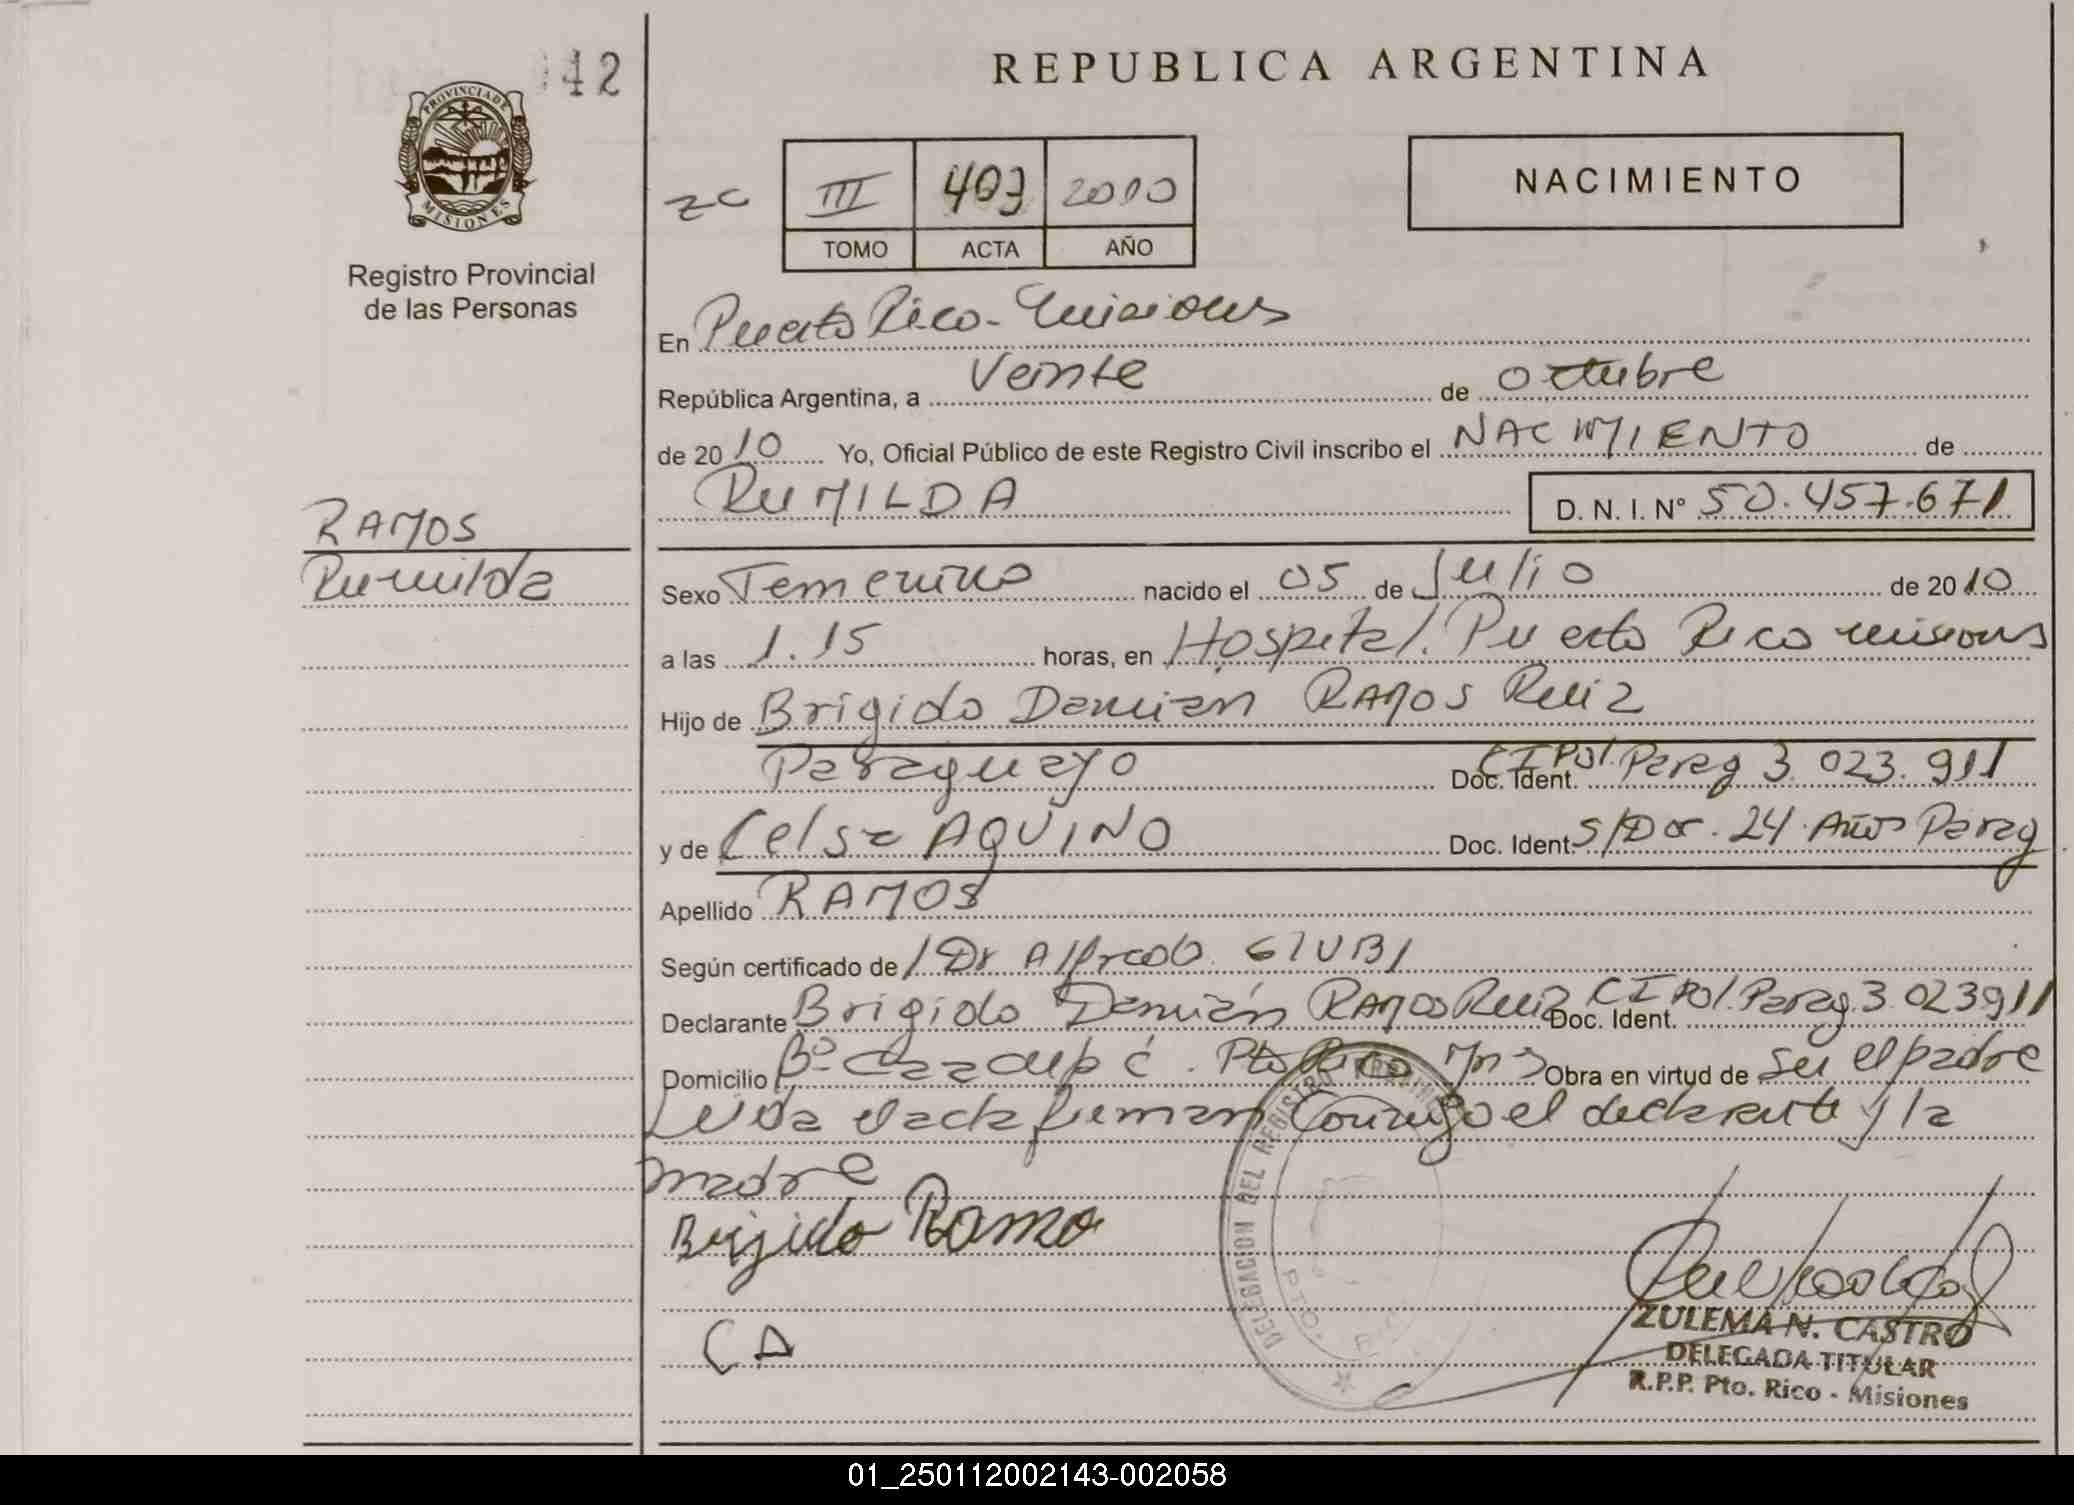 42
REPUBLICA ARGENTINA
PROVINCIA DE
MISIONES
Registro Provincial
de las Personas
ZC III 403 2010
TOMO ACTA AÑO
NACIMIENTO
En Puerto Rico - Misiones
República Argentina, a Veinte de octubre
de 2010 Yo, Oficial Público de este Registro Civil inscribo el NACIMIENTO de
RUMILDA D. N. I. N° 50.457.671
RAMOS
Rumilda
Sexo Femenino nacido el 05 de Julio de 2010
a las 1.15 horas, en Hospital. Puerto Rico misiones
Hijo de Brigido Damian RAMOS Ruiz
Paraguayo Doc. Ident. CI Pol. Parag 3.023.911
y de Celsa AQUINO Doc. Ident. S/Doc. 24 Años Parag
Apellido RAMOS
Según certificado de / Dr Alfredo GIUBI
Declarante Brigido Damián RAMOS Ruiz Doc. Ident. CI Pol. Parag. 3.023911
Domicilio Bº Caacupé. Pto Rico Mns Obra en virtud de ser el padre
Leida el acta firman conmigo el declarante y la
madre
Brigido Ramo
CA
DELEGACION DEL REGISTRO
PTO.
ZULEMA N. CASTRO
DELEGADA TITULAR
R.P.P. Pto. Rico - Misiones
01_250112002143-002058